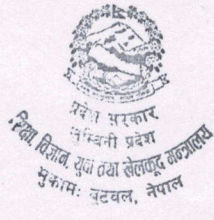 प्रदेश सरकार
लुम्बिनी प्रदेश
शिक्षा विज्ञान, युवा तथा खेलकूद मन्त्रालय
मुकाम: बुटवल, नेपाल